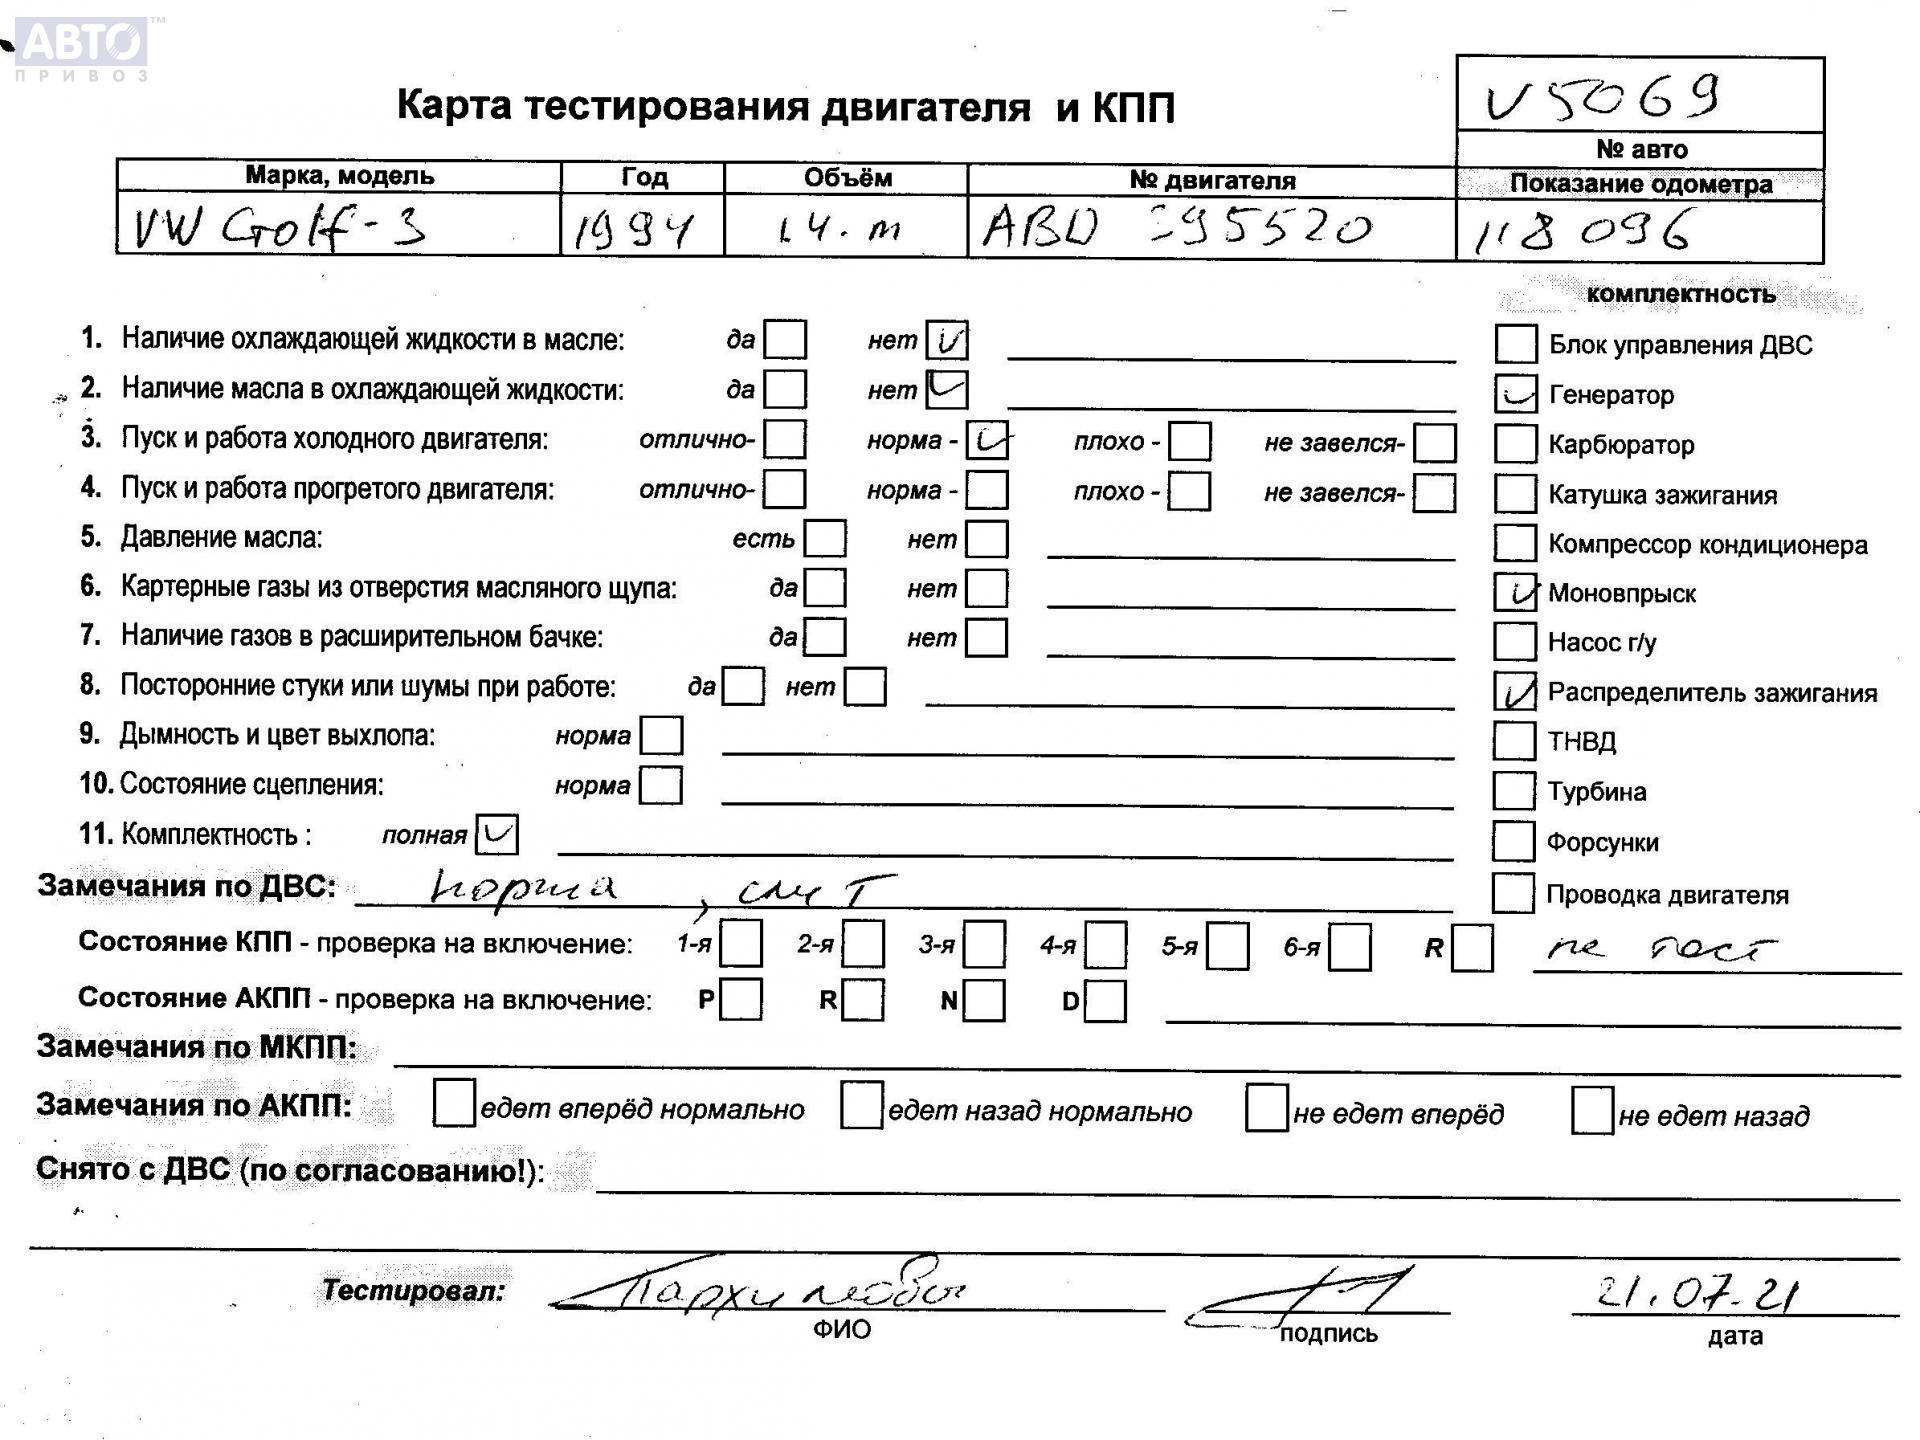 АВТО™
ПРИВОЗ
V5069
Карта тестирования двигателя и КПП
№ авто
Марка, модель Год Объём № двигателя Показание одометра
VW Golf-3 1994 1.4. m ABD 118 096
комплектность
1. Наличие охлаждающей жидкости в масле: да нет Блок управления ДВС
2. Наличие масла в охлаждающей жидкости: да нет Генератор
3. Пуск и работа холодного двигателя: отлично- норма - плохо - не завелся- Карбюратор
4. Пуск и работа прогретого двигателя: отлично- норма - плохо - не завелся- Катушка зажигания
5. Давление масла: есть нет Компрессор кондиционера
6. Картерные газы из отверстия масляного щупа: да нет Моновпрыск
7. Наличие газов в расширительном бачке: да нет Насос г/у
8. Посторонние стуки или шумы при работе: да нет Распределитель зажигания
9. Дымность и цвет выхлопа: норма ТНВД
10. Состояние сцепления: норма Турбина
11. Комплектность : полная Форсунки
Замечания по ДВС: норма, Проводка двигателя
Состояние КПП - проверка на включение: 1-я 2-я 3-я 4-я 5-я 6-я R не тест
Состояние АКПП - проверка на включение: P R N D
Замечания по МКПП:
Замечания по АКПП: едет вперёд нормально едет назад нормально не едет вперёд не едет назад
Снято с ДВС (по согласованию!):
Тестировал: 21.07.21
ФИО подпись дата